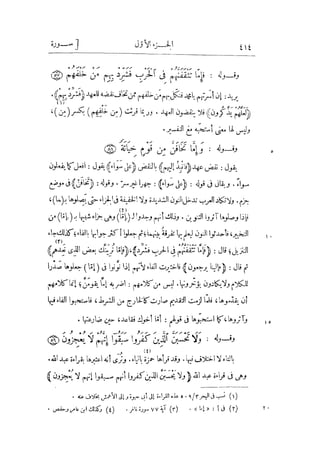 ٤١٤ الجزء الأول [ سورة
وقوله : فَإِمَّا تَثْقَفَنَّهُمْ فِى الْحَرْبِ فَشَرِّدْ بِهِم مَّنْ خَلْفَهُمْ
يريد : إن أسرتهم يا محمد فنكل بهم من خلفهم ممن تخاف نقضه للعهد (فشرد بهم) .
(لعلهم يذكرون) فلا ينقضون العهد . وربما قرئت (من خلفهم) بكسر (من) ،
وليس لها معنى أستحبه مع التفسير .
وقوله : وَإِمَّا تَخَافَنَّ مِن قَوْمٍ خِيَانَةً
يقول : نقض عهد (فانبذ إليهم) بالنقض (على سواء) يقول : افعل كما يفعلون
سواء . ويقال فى قوله : (على سواء) : جهرا غير سر . وقوله : (تخافن) فى موضع
جزم . ولا تكاد العرب تدخل النون الشديدة ولا الخفيفة فى الجزاء حتى يصلوها بـ(ما) ،
فإذا وصلوها آثروا التنوين . وذلك أنهم وجدوا لـ (إمّا) وهى جزاء شبيها بـ(إمّا) من
التخيير ، فأحدثوا النون ليعلم بها تفرقة بينهما ؛ ثم جعلوا أكثر جوابها بالفاء ؛ كذلك جاء
التنزيل ؛ قال : (فإما تثقفنهم فى الحرب فشرد) ، (فإما نرينك بعض الذى نعدهم)
ثم قال : (فإلينا يرجعون) فاختيرت الفاء لأنهم إذا نونوا فى (إمّا) جعلوها صدرا
للكلام ولا يكادون يؤخرونها . ليس من كلامهم : اضربه إما يقومنّ ؛ إنما كلامهم
أن يقدموها ، فلما لزمت التقديم صارت كالخارج من الشرط ، فاستحبوا الفاء فيها
وآثروها ، كما استحبوها فى قولهم : أما أخوك فقاعد ، حين ضارعتها .
وقوله : وَلَا تَحْسَبَنَّ الَّذِينَ كَفَرُوا سَبَقُوا إِنَّهُمْ لَا يُعْجِزُونَ
بالتاء لا اختلاف فيها . وقد قرأها حمزة بالياء . ونرى أنه اعتبرها بقراءة عبد الله .
وهى فى قراءة عبد الله (ولا يحسبن الذين كفروا أنهم سبقوا إنهم لا يعجزون)
(٢) فى أ : (٣) آية ٧٧ سورة غافر . (٤) وكذلك ابن عامر وحفص .